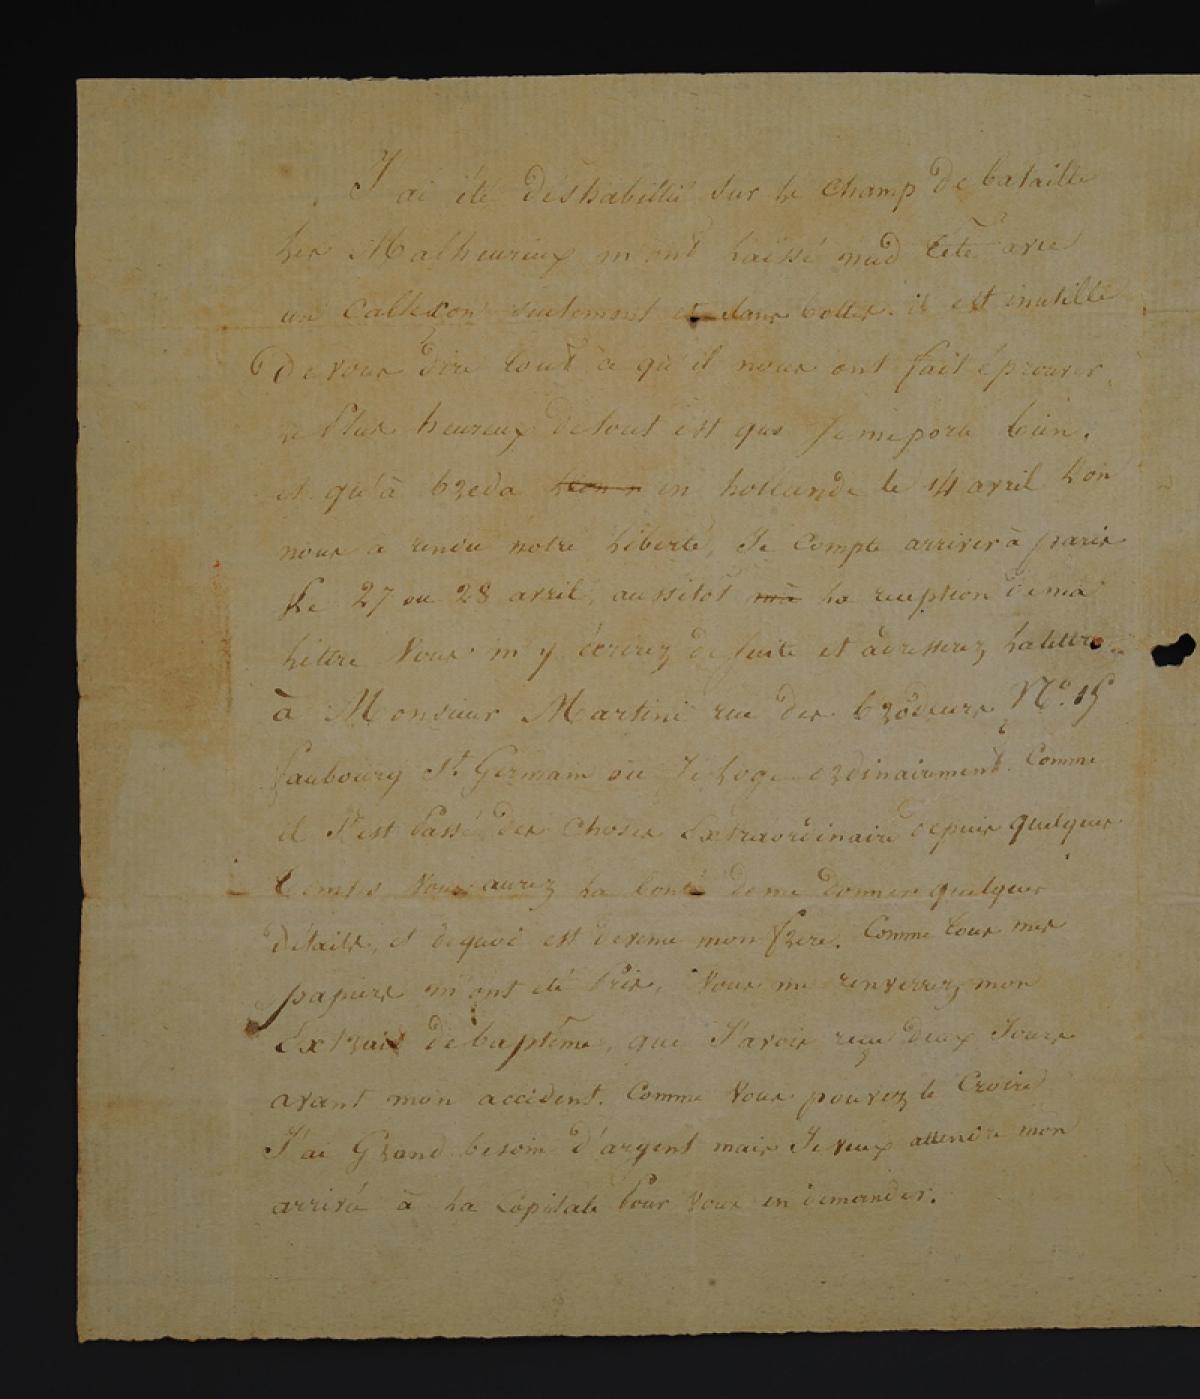 J'ai été déshabillié sur le champ de bataille
les Malheureux m'ont laissé nud tête avec
un calleçon seulement et sans bottes. il est inutille
de vous dire tout ce qu'il nous ont fait éprouver,
le plus heureux de tout est que Je me porte bien.
et qu'à breda en hollande le 14 avril l'on
nous a rendu notre liberté, Je Compte arriver à paris
Le 27 ou 28 avril, aussitôt ma la reception de ma
lettre Vous m'y écrirez de suite et adresserez la lettre
à Monsieur Martini rue des brodeurs N.º 15
faubourg St. Germain où Je loge ordinairement. Comme
il s'est Passé des choses Extraordinaire depuis quelques
temps Vous aurez la bonté de me donner quelques
détails, et de quoi est devenu mon frere. Comme tous mes
papiers m'ont été Pris, Vous me renverrez mon
Extrait de baptême, que J'avois reçu deux Jours
avant mon accident. Comme Vous pouvez le Croire
J'ai Grand besoin d'argent mais Je veux attendre mon
arrivée à la Capitale Pour Vous en demander.